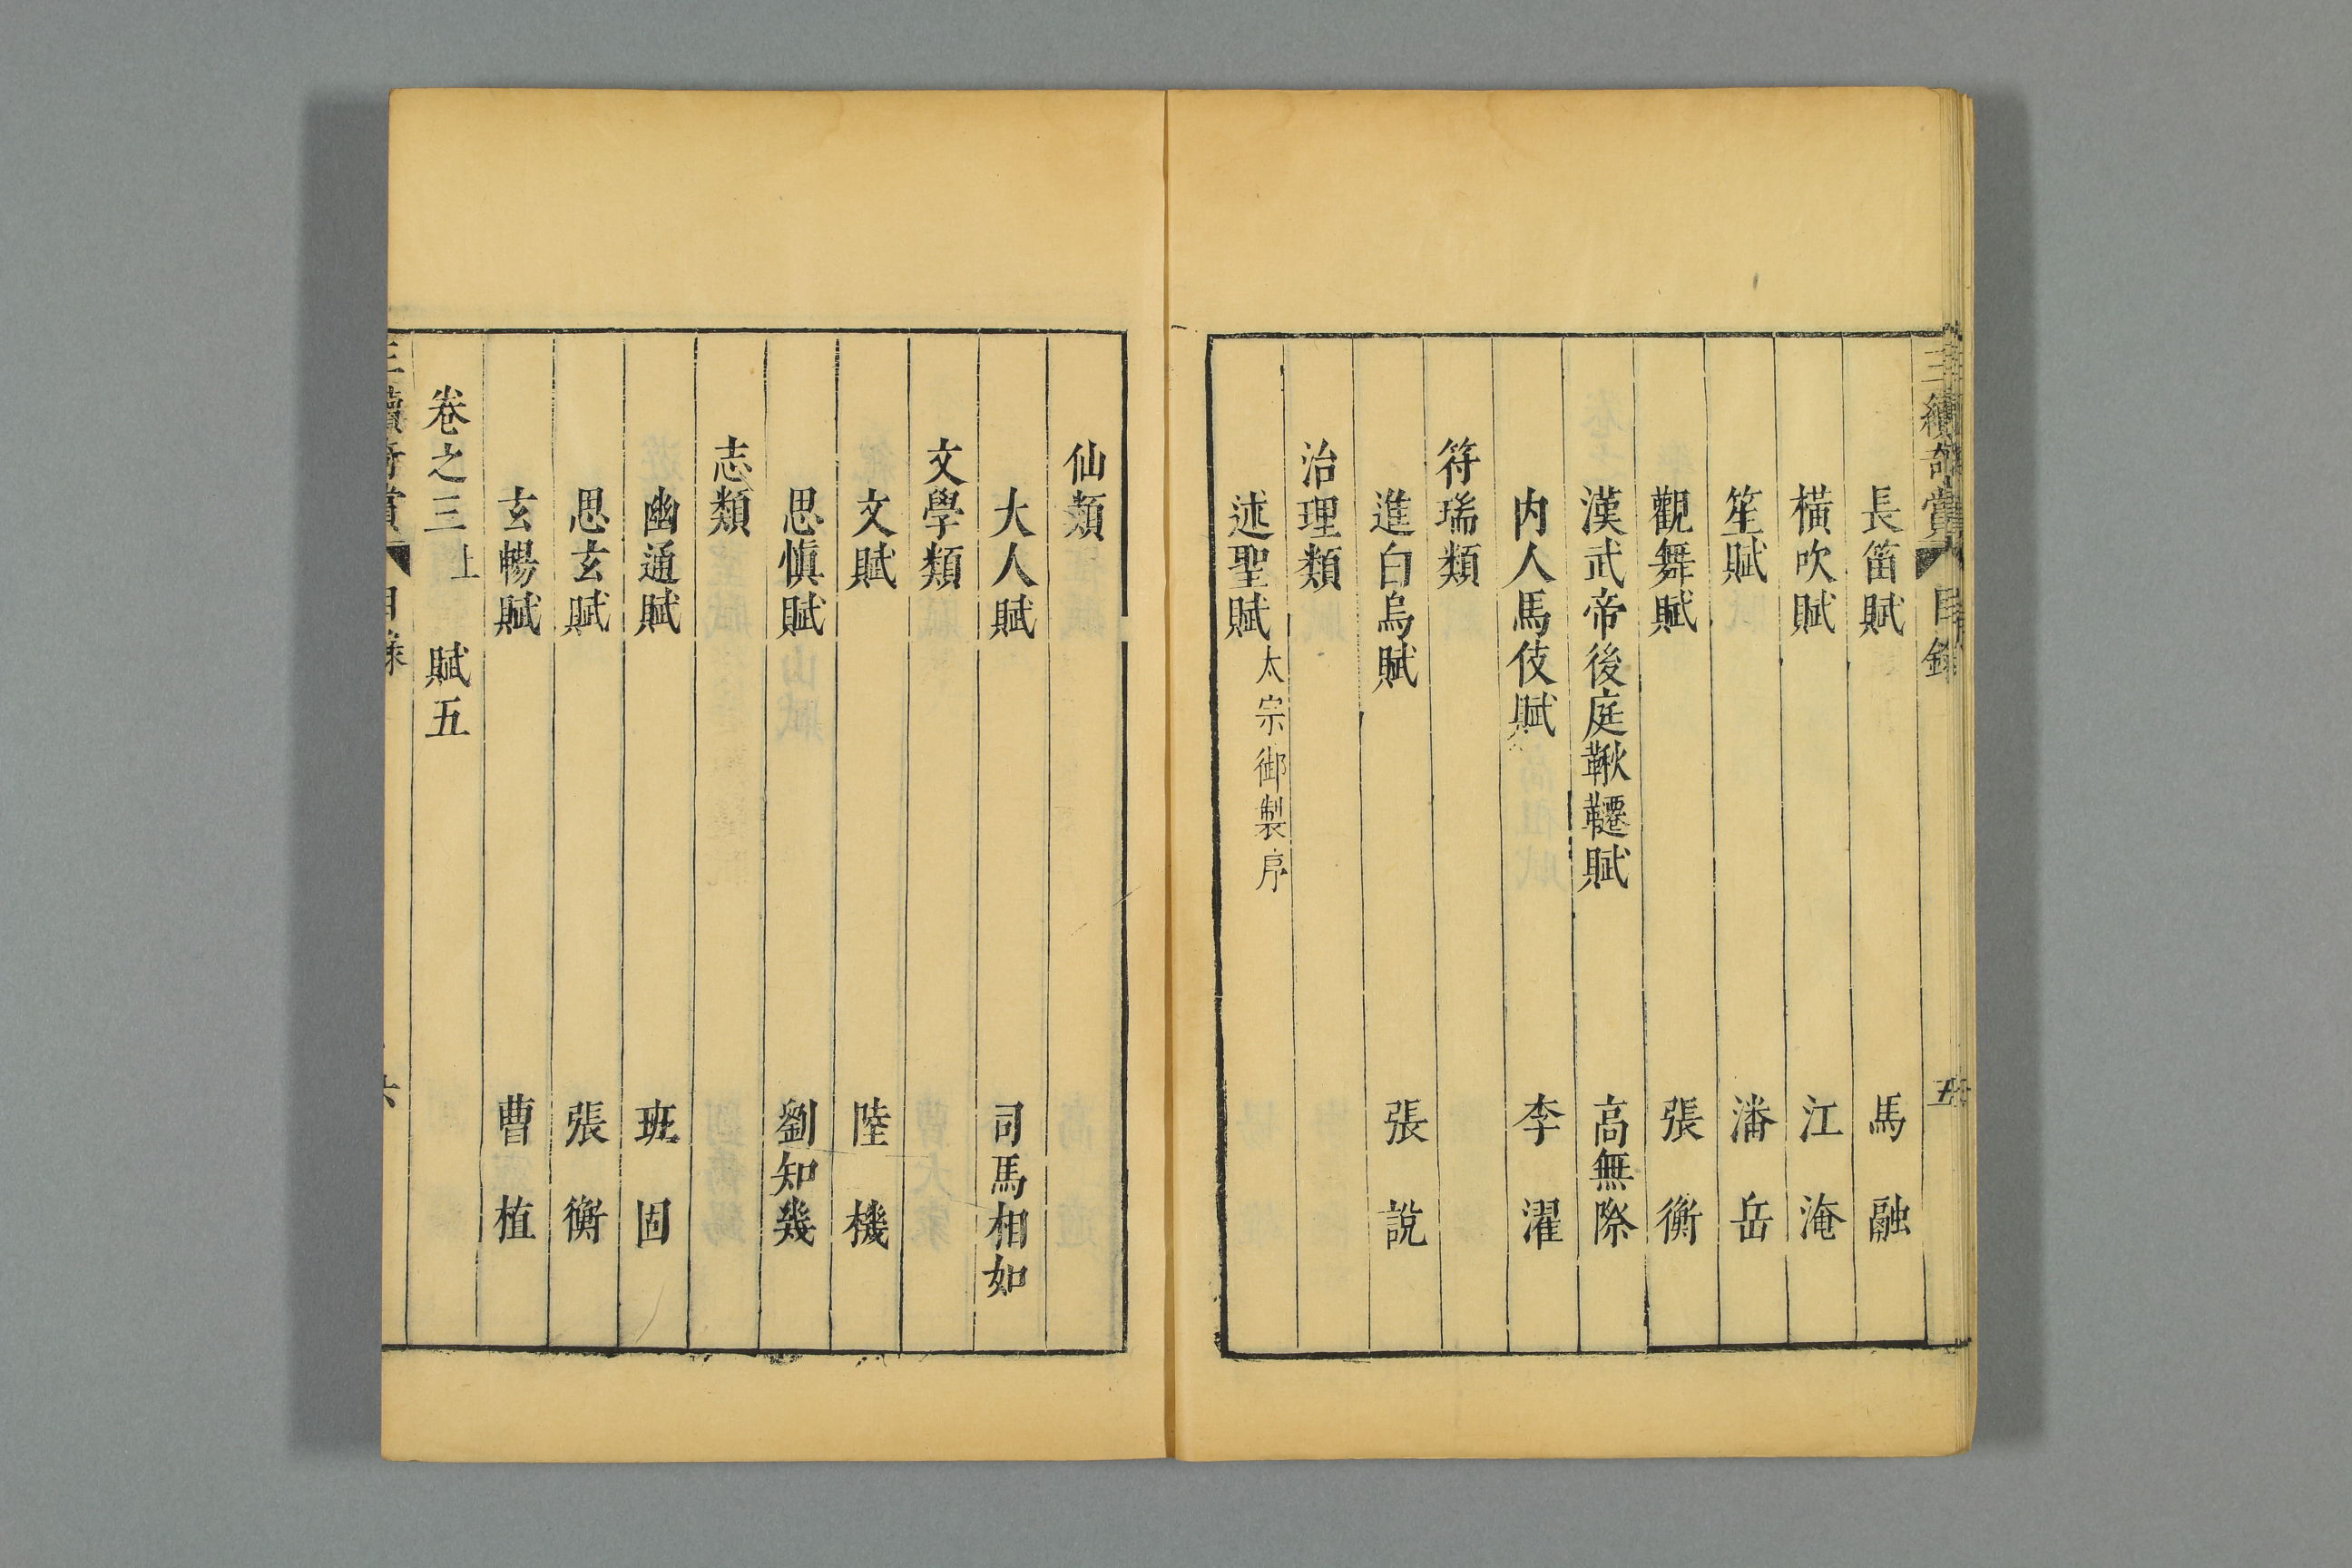 三續奇賞 目錄 五
長笛賦 馬融
橫吹賦 江淹
笙賦 潘岳
觀舞賦 張衡
漢武帝後庭鞦韆賦 高無際
内人馬伎賦 李濯
符瑞類
進白烏賦 張說
治理類
述聖賦 太宗御製序
仙類
大人賦 司馬相如
文學類
文賦 陸機
思愼賦 劉知幾
志類
幽通賦 班固
思玄賦 張衡
玄暢賦 曹植
卷之三上 賦五
三續奇賞 目錄 六